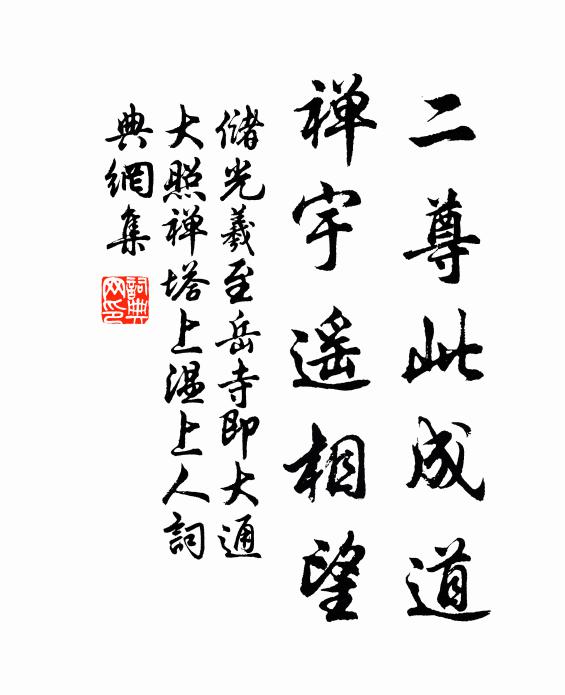 二尊此成道
禅宇遥相望
储光羲至岳寺即大通
大照禅塔上温上人詞
典網集
詞典
网印